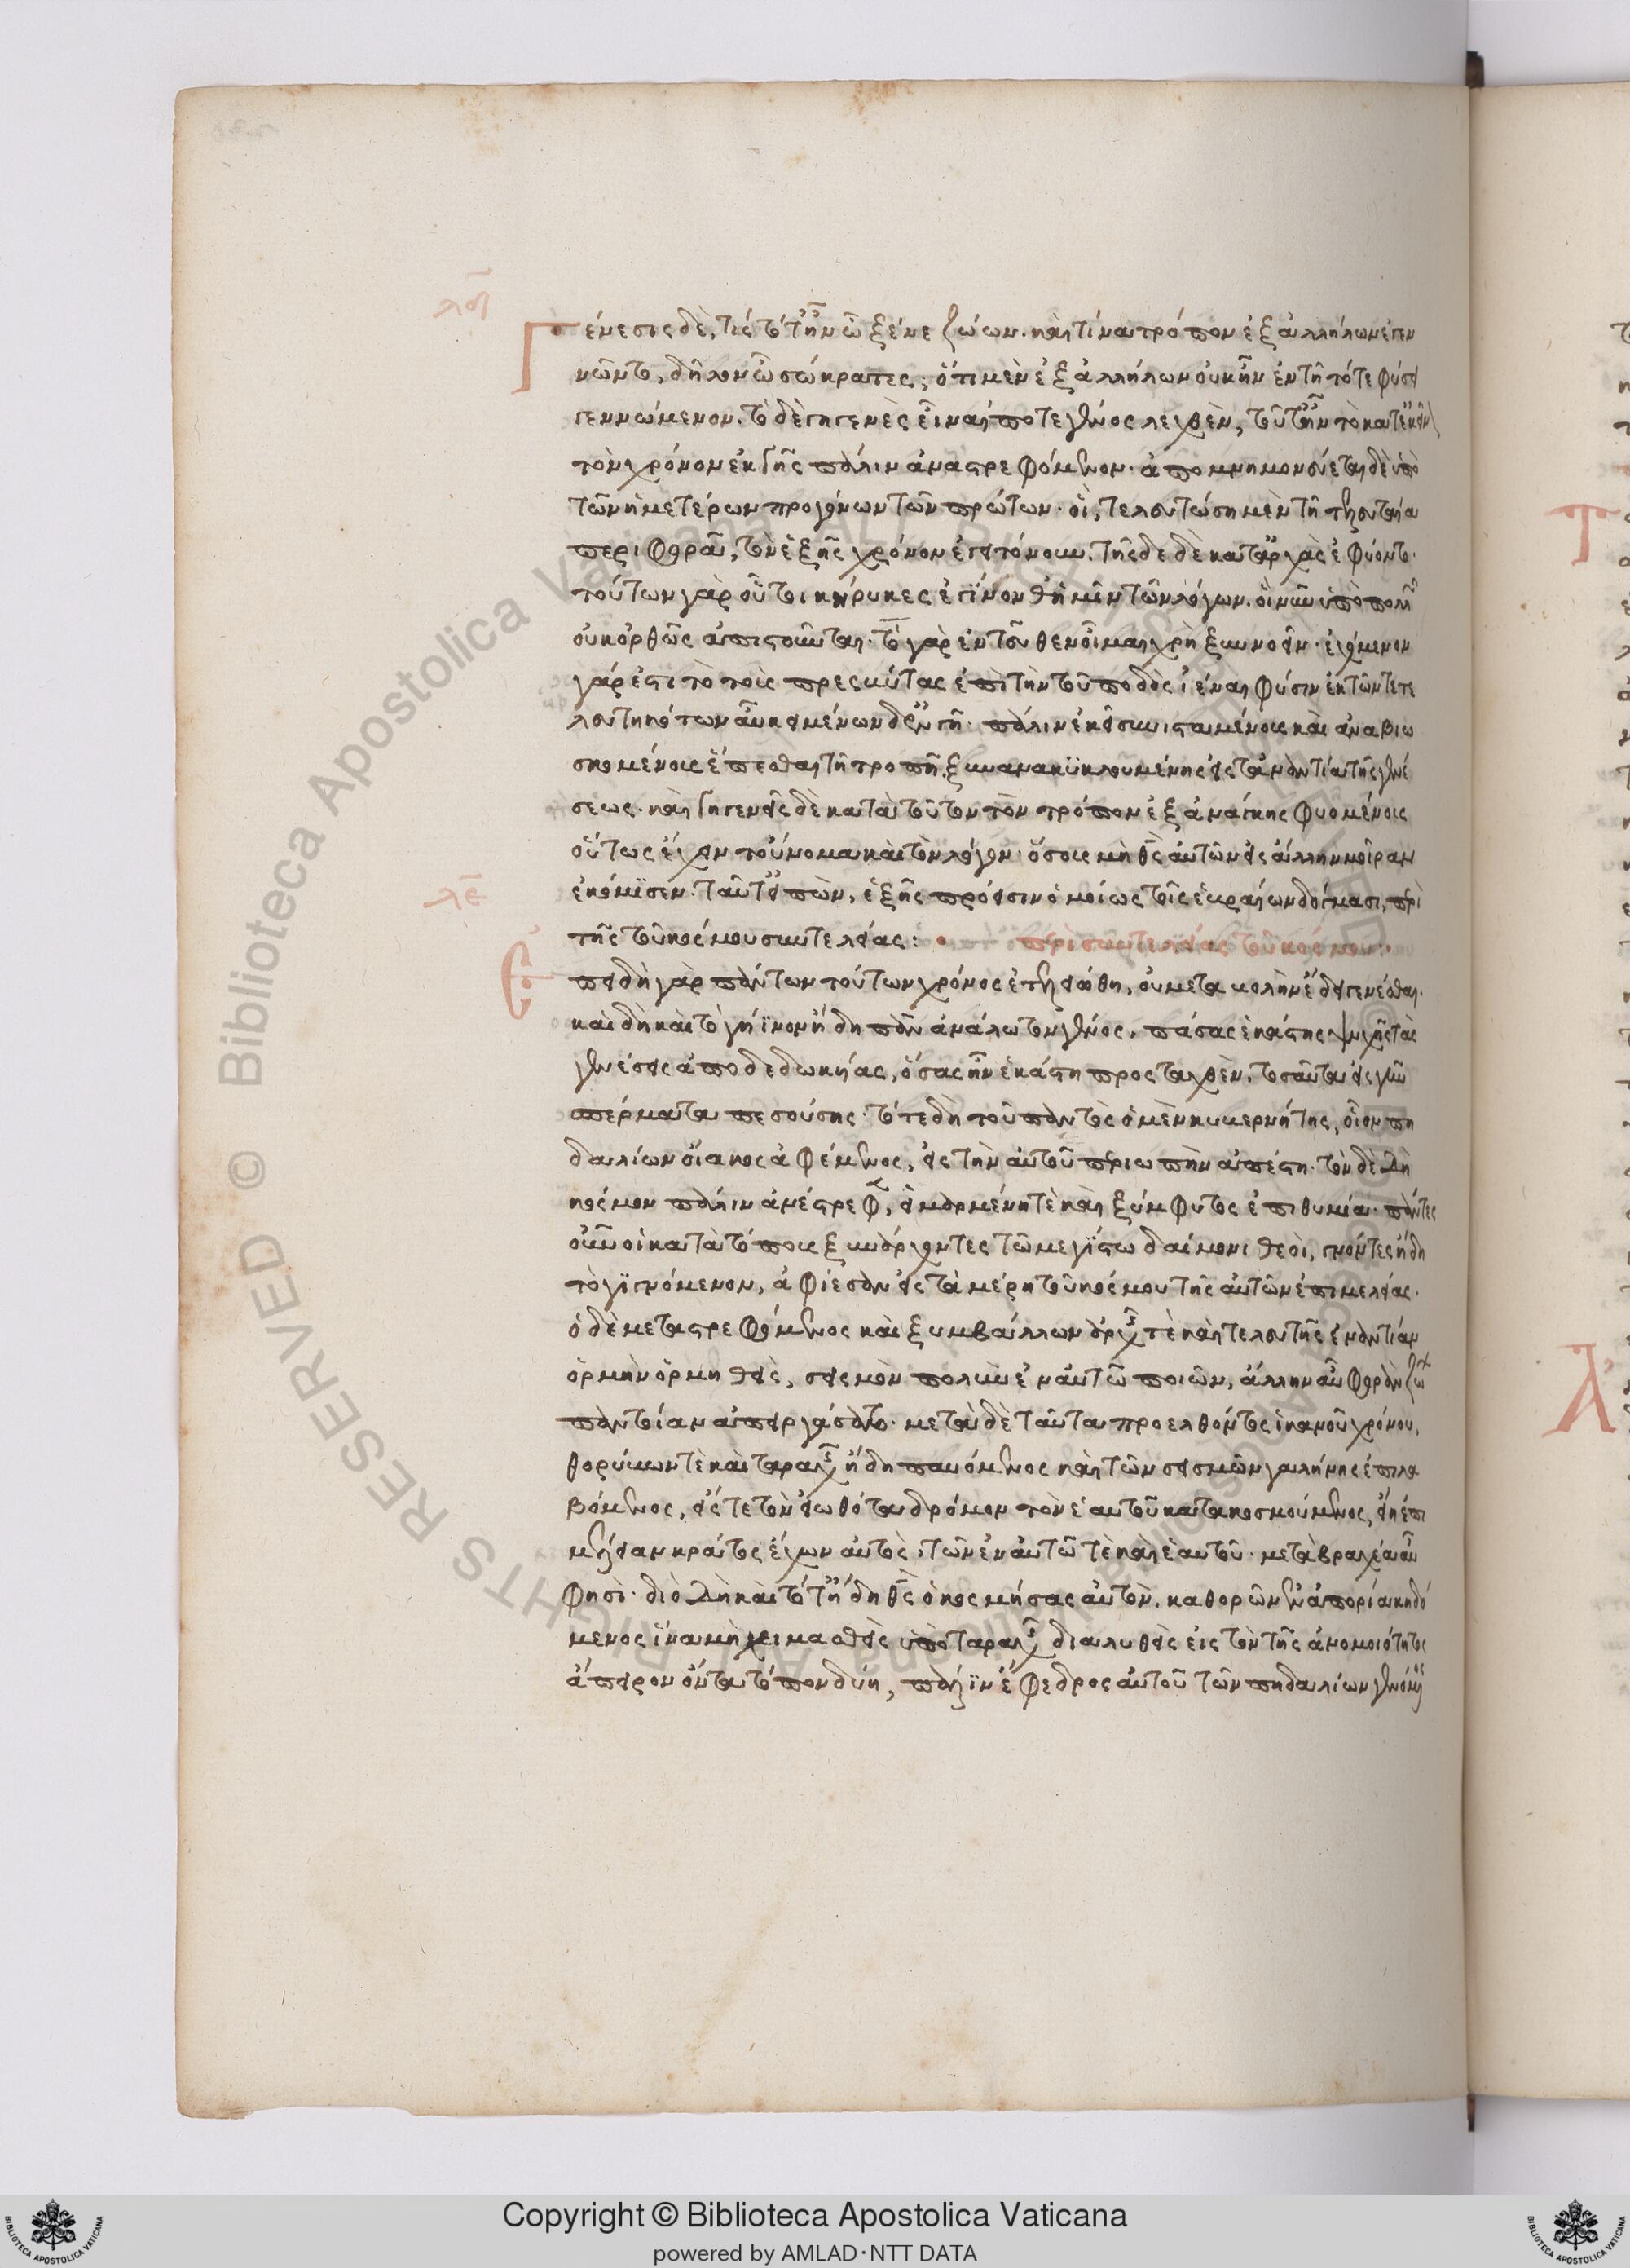 λδ
Γένεσις δὲ, τίς τότ' ἦν ὦ ξένε ζώων. καὶ τίνα τρόπον ἐξ ἀλλήλων ἐγεν
νῶντο, δῆλον ὦ σώκρατες; ὅτι μὲν ἐξ ἀλλήλων οὐκ ἦν ἐν τῇ τότε φύσει
γεννώμενον. τὸ δὲ γηγενὲς εἶναί ποτε γένος λεχθὲν, τοῦτ' ἦν τὸ κατ' ἐκεῖνον
τὸν χρόνον ἐκ γῆς πάλιν ἀναστρεφόμενον. ἀπομνημονεύεται δὲ ὑπὸ
τῶν ἡμετέρων προγόνων τῶν πρώτων. οἳ, τελευτώσῃ μὲν τῇ προτέρᾳ
περιφορᾷ, τὸν ἑξῆς χρόνον ἐγειτόνουν. τῆσδε δὲ κατ' ἀρχὰς ἐφύοντο.
τούτων γὰρ οὗτοι κήρυκες ἐγίνονθ' ἡμῖν τῶν λόγων. οἳ νῦν ὑπὸ πολλῶν
οὐκ ὀρθῶς ἀπιστοῦνται. τὸ γὰρ ἐντεῦθεν οἶμαι χρὴ ξυννοεῖν. ἐχόμενον
γάρ ἐστι τὸ τοὺς πρεσβύτας ἐπὶ τὴν τοῦ παιδὸς ἰέναι φύσιν ἐκ τῶν τετε
λευτηκότων αὖ κειμένων δ' ἐν γῇ. πάλιν ἐκεῖ συνισταμένους καὶ ἀναβιω
σκομένους ἕπεσθαι τῇ τροπῇ ξυνανακυκλουμένης εἰς τἀναντία τῆς γενέ
σεως. καὶ γηγενεῖς δὲ κατὰ τοῦτον τὸν τρόπον ἐξ ἀνάγκης φυομένους
οὕτως ἔχειν τοὔνομα καὶ τὸν λόγον. ὅσους μὴ θεὸς αὐτῶν εἰς ἄλλην μοῖραν
λε
ἐκόμισεν. ταῦτ' εἰπὼν, ἑξῆς πρόσεισιν ὁμοίως τοῖς ἑβραίων δόγμασι, περὶ
τῆς τοῦ κόσμου συντελείας:
περὶ συντελείας τοῦ κόσμου:
Ἐπειδὴ γὰρ πάντων τούτων χρόνος ἐτελεώθη, οὐ μεταβολὴν ἔδει γενέσθαι.
καὶ δὴ καὶ τὸ γήϊνον ἤδη πᾶν ἀνάλωτο γένος. πάσας ἑκάστης ψυχῆς τὰς
γενέσεις ἀποδεδωκυίας, ὅσας ἦν ἑκάστῃ προσταχθὲν. τοσαῦτα εἰς γῆν
σπέρματα πεσούσης. τότε δὴ τοῦ παντὸς ὁ μὲν κυβερνήτης, οἷον πη
δαλίων οἴακος ἀφέμενος, εἰς τὴν αὐτοῦ περιωπὴν ἀπέστη. τὸν δὲ δὴ
κόσμον πάλιν ἀνέστρεφεν, εἱμαρμένη τὲ καὶ ξύμφυτος ἐπιθυμία. πάντες
οὖν οἱ κατὰ τόπους ξυνάρχοντες τῷ μεγίστῳ δαίμονι θεοὶ, γνόντες ἤδη
τὸ γιγνόμενον, ἀφίεσαν εἰς τὰ μέρη τοῦ κόσμου τῆς αὐτῶν ἐπιμελείας.
ὁ δὲ μεταστρεφόμενος καὶ ξυμβάλλων ἀρχῆς τὲ καὶ τελευτῆς ἐναντίαν
ὁρμὴν ὁρμηθεὶς, σεισμὸν πολὺν ἐν αὐτῷ ποιῶν, ἄλλην αὖ φθορὰν ζώων
παντοίαν ἀπειργάσατο. μετὰ δὲ ταῦτα προελθόντος ἱκανοῦ χρόνου,
θορύβων τὲ καὶ ταραχῆς ἤδη παυόμενος καὶ τῶν σεισμῶν γαλήνης ἐπιλα
βόμενος, εἴς τε τὸν εἰωθότα δρόμον τὸν ἑαυτοῦ κατακοσμούμενος, ᾔει ἐπι
μέλειαν κράτος ἔχων αὐτὸς, τῶν ἐν αὐτῷ τὲ καὶ ἑαυτοῦ. μετὰ βραχέα αὖ
φησὶ. διὸ δὴ καὶ τότ' ἤδη θεὸς ὁ κοσμήσας αὐτὸν. καθορῶν ἐν ἀπορίᾳ κηδό
μενος ἵνα μὴ χειμασθεὶς ὑπὸ ταραχῆς διαλυθεὶς εἰς τὸν τῆς ἀνομοιότητος
ἄπειρον ὄντα τόπον δύῃ, πάλιν ἔφεδρος αὐτοῦ τῶν πηδαλίων γενόμενος
Biblioteca Apostolica Vaticana
ALL RIGHTS RESERVED
©
Copyright © Biblioteca Apostolica Vaticana
powered by AMLAD·NTT DATA